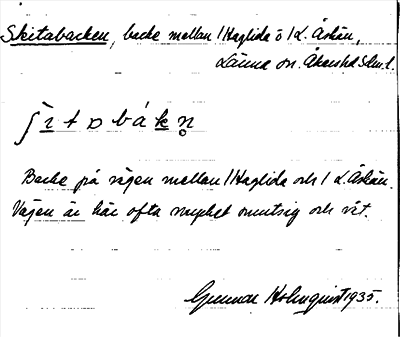 Skitabacken, backe mellan 1 Haglida o 1 L. Åskän,
Länna sn. Åkers hd Sdm. l.
ʃɪtabákn̥
Backe på vägen mellan 1 Haglida och 1 L. Åskän.
Vägen är här ofta mycket smutsig och våt.
Gunnar Holmquist 1935.